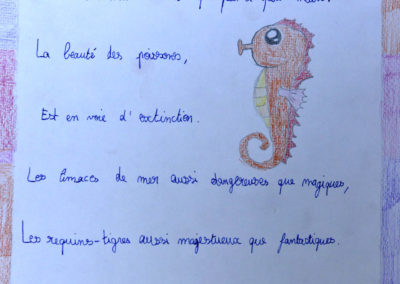 La beauté des poissons,
Est en voie d'extinction.
Les limaces de mer aussi dangereuses que magiques,
Les requins-tigres aussi majestueux que fantastiques.